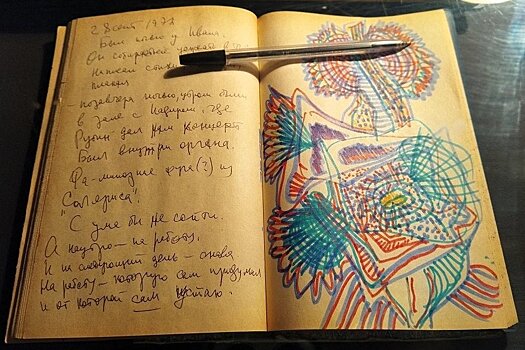 28 сент 1972
Был ночью у Ивана.
Он собирается уезжать в
Написал стихи
плакал
позавчера ночью, утром были
в зале с Надиром, где
Рубин дал нам концерт
Был внутри органа.
Фа-минорные фуги(?) из
"Соляриса".
С ума бы не сойти.
А наутро — на работу.
И на следующий день — снова
На работу — которую сам придумал
и от которой сам устаю.